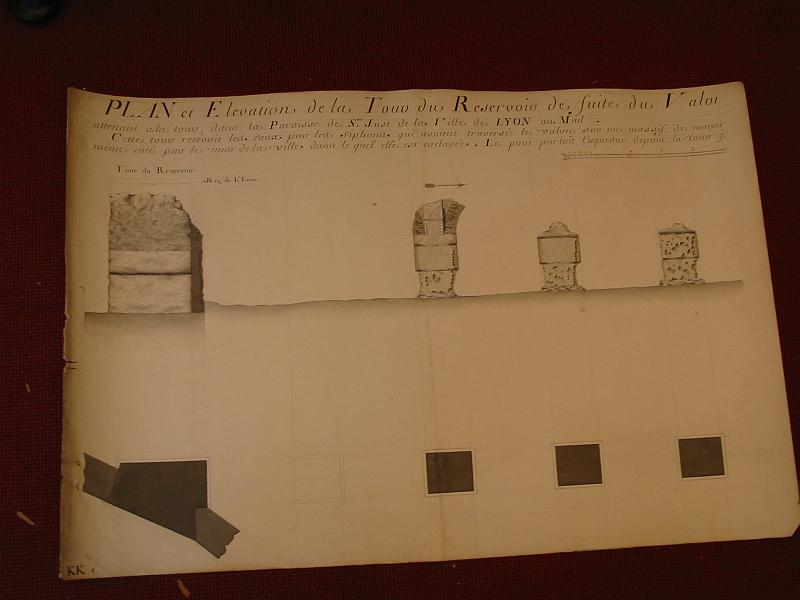 PLAN et Elevation de la Tour du Reservoir de suite du Valon
attenant a la tour, dans la Paroisse de St. Just de la Ville de LYON au Midi.
Cette tour recevoit les eaux par les siphons qui avoient traversé le valon sur un massif de maçon
même coté par le mur de la ville, dans le quel elle est enclavée. Le pont portoit l'aqueduc depuis la tour
Tour du Reservoir
KK